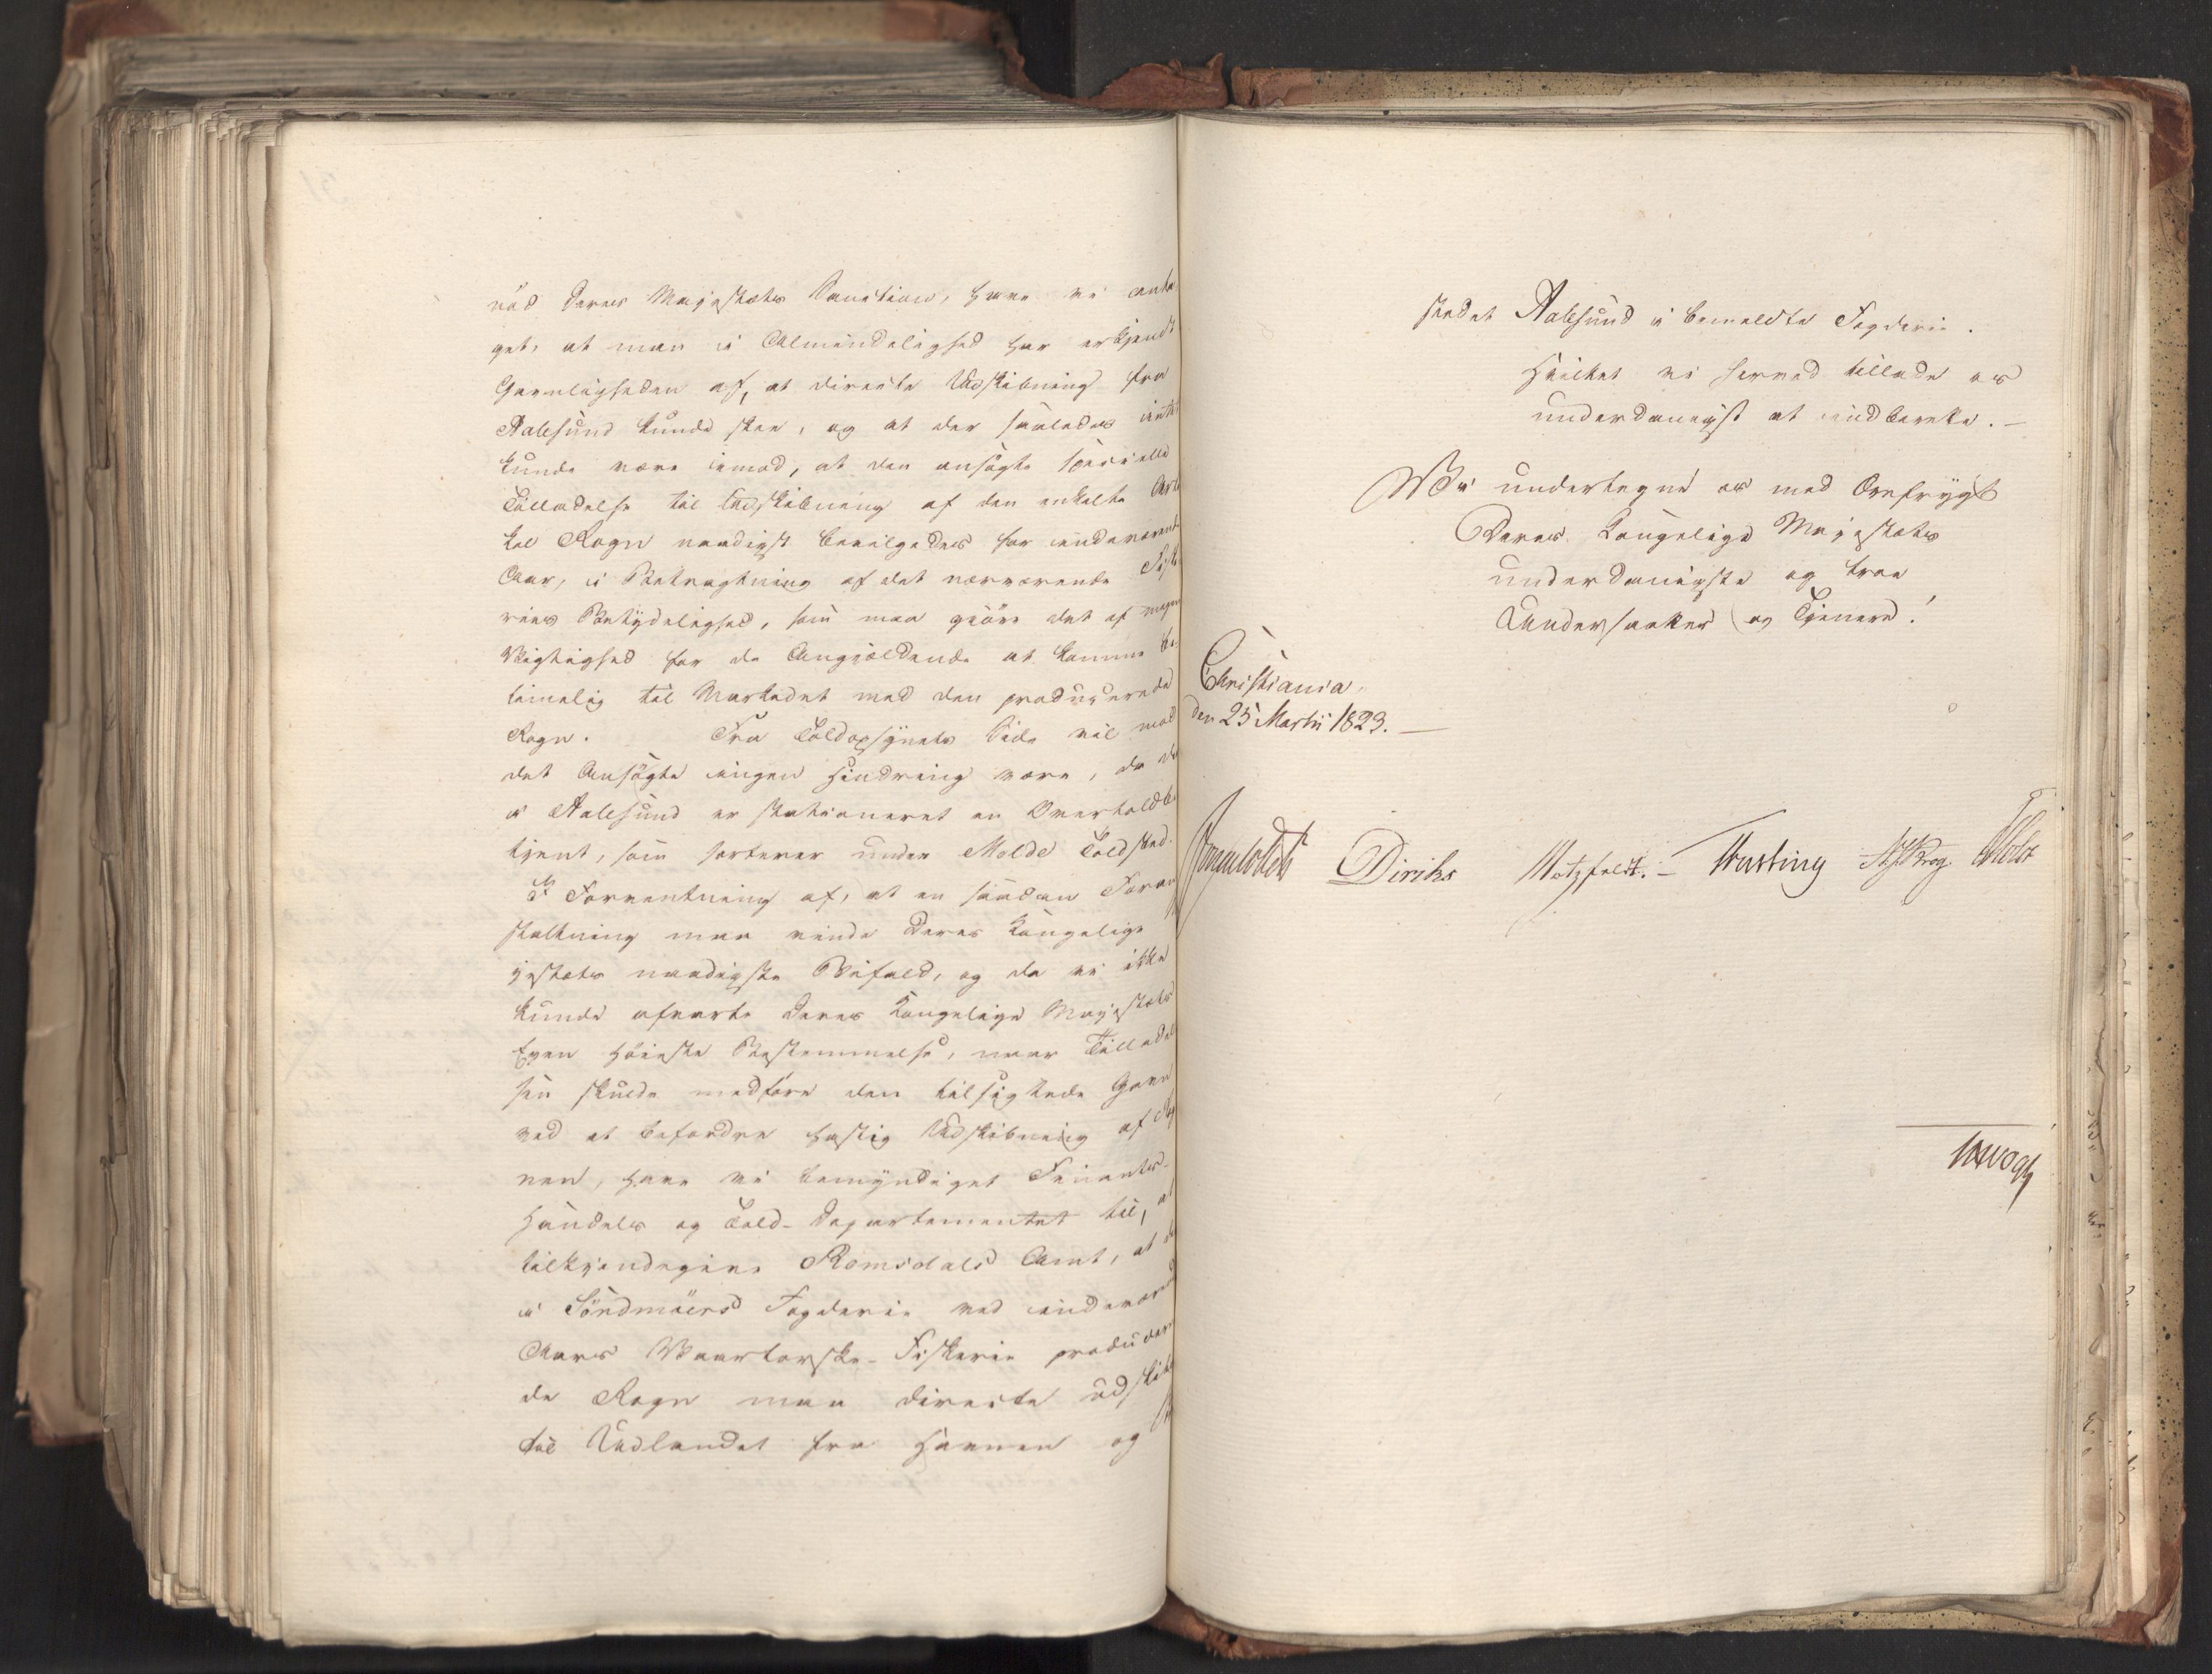 ved Deres Majestæts Sanction, have vi anta
get, at man i Almindelighed har erkjendt
Gavnligheden af, at directe Udskibning fra
Aalesund kunde skee, og at der saaledes intet
kunde være imod, at den ansøgte specielle
Tilladelse til Udskibning af den enkelte Arti
kel Rogn naadigst bevilgedes for indeværende
Aar, i Betragtning af det nærværende Fiske
ries Betydelighed, som maa gjøre det af megen
Vigtighed for de Angjældende at komme be
timelig til Markedet med den producerede
Rogn. Fra Toldopsynets Side vil mod
det Ansøgte ingen Hindring være, da der
i Aalesund er stationeret en Overtoldbe
tjent, som sorterer under Molde Toldsted.
I Forventning af, at en saadan Foran
staltning maa vinde Deres Kongelige
jestæts naadigste Bifald, og da vi ikke
kunde afvarte Deres Kongelige Majestæts
Egen Høieste Bestemmelse, naar Tilladel
sen skulde medføre den tilsigtede Gavn
ved at befordre hastig Udskibning af Rog
nen, have vi bemyndiget Finants-
Handels og Told-Departementet til, at
tilkjendegive Romsdals Amt, at den
i Söndmöers Fogderie ved indeværende
Aars Vaartorske-Fiskerie producere
de Rogn maa directe udskibes
til Udlandet fra Havnen og
stedet Aalesund i bemeldte Fogderie.
Hvilket vi herved tillade os
underdanigst at indberette.—
Vi undertegne os med Ærefrygt
Deres Kongelige Majestæts
underdanigste og troe
Undersaatter og Tjenere!
Christiania
den 25 Martii 1823.—
Diriks Motzfeldt.— Krog. Holst